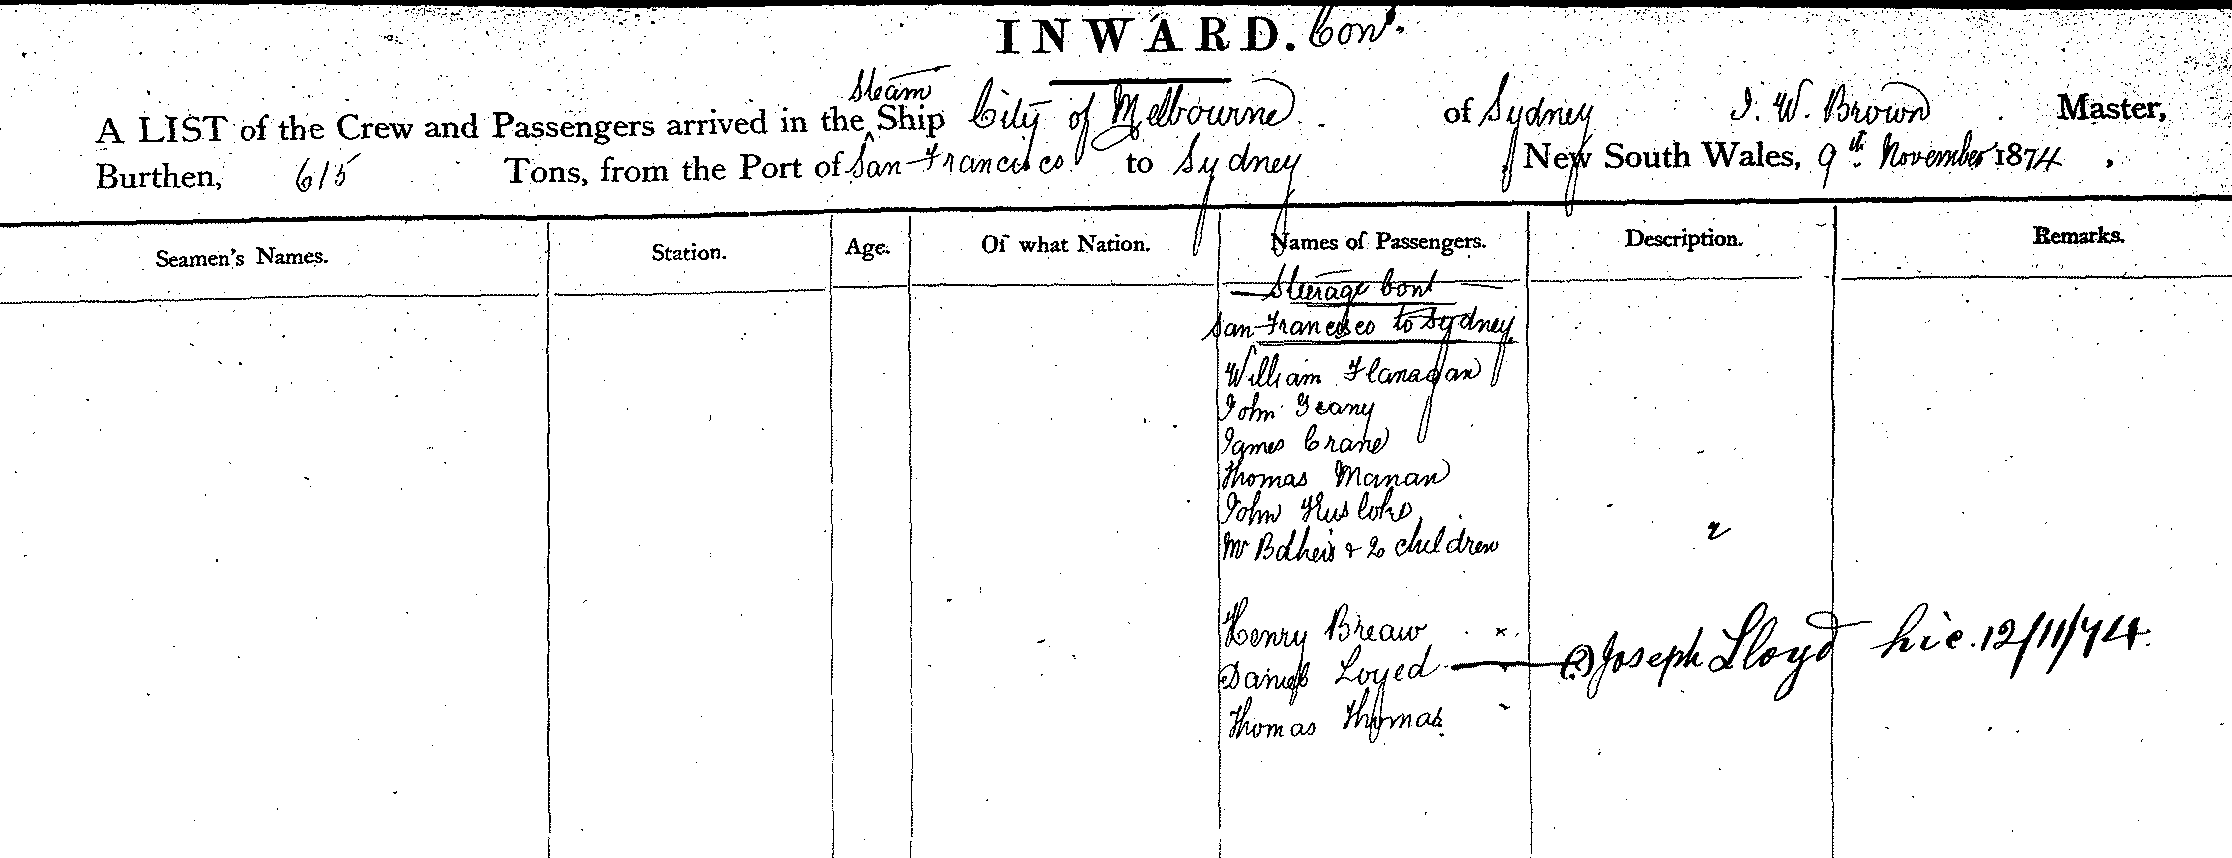 INWARD. Cont.
Steam
A LIST of the Crew and Passengers arrived in the ^ Ship City of Melbourne of Sydney J. W. Brown Master,
Burthen, 615 Tons, from the Port of San Francisco to Sydney New South Wales, 9th November 1874.
Seamen's Names. Station. Age. Of what Nation. Names of Passengers. Description. Remarks.
Steerage Cont
San Francisco to Sydney
William Flanagan
John Geany
James Crane
Thomas Manan
John
Mr & 2 children
Henry Breaw
Daniel Loyed (?) Joseph Lloyd hic. 12/11/74.
Thomas Thomas